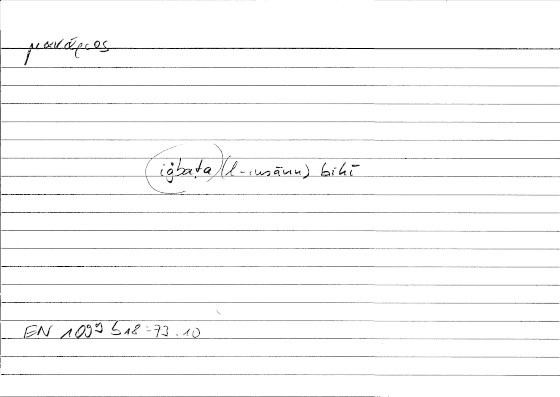 μακάριος
iġbaṭa (l-insānu) bihī
EN 1099 b 18 = 73.10